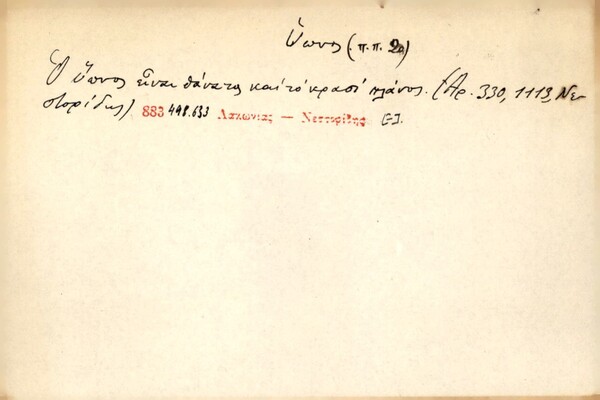 ὕπνος (π.π. 2α)
Ὁ ὕπνος εἶναι θάνατος καὶ τὸ κρασὶ πλάνος. (Ἀρ. 330, 1113, Νε-
στορίδης) 883 448.633 Λακωνίας — Νεστορίδης